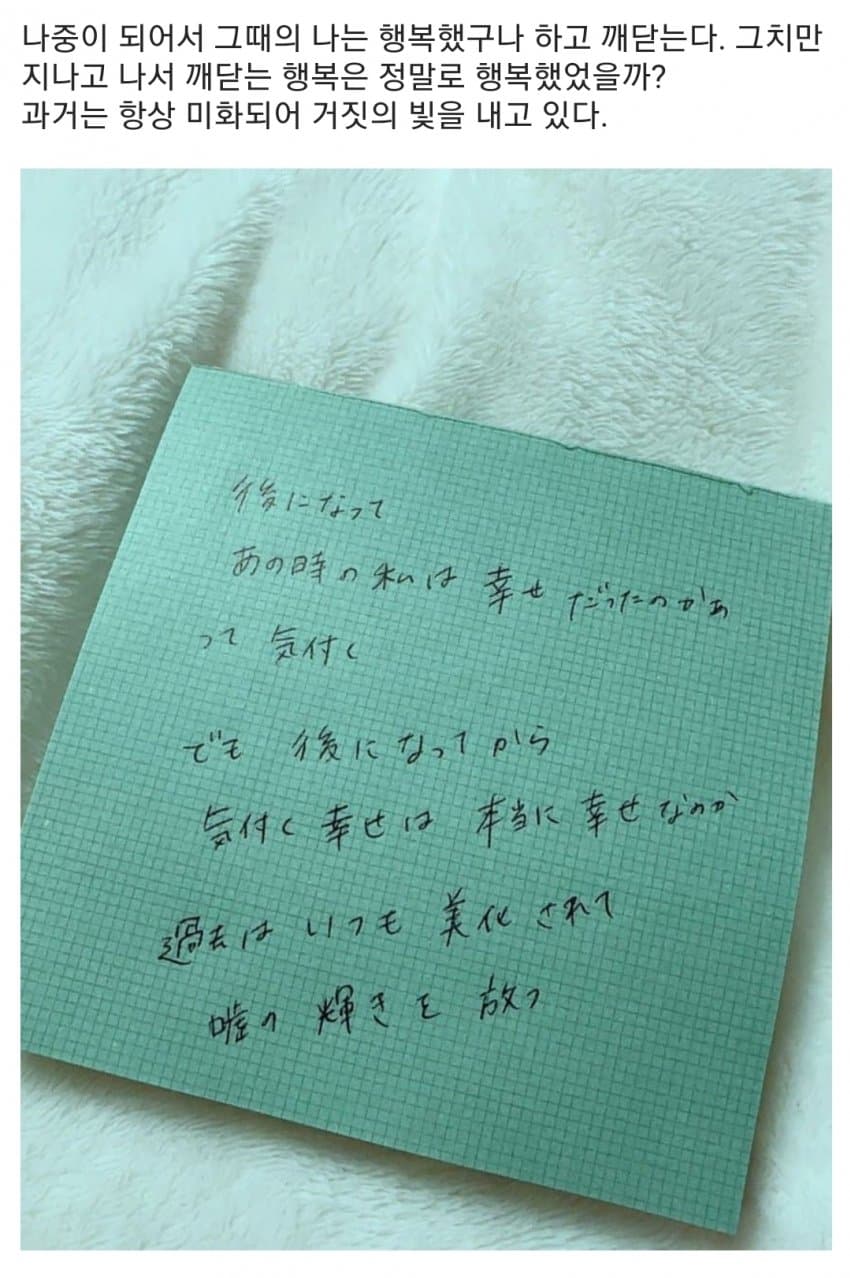 나중이 되어서 그때의 나는 행복했구나 하고 깨닫는다. 그치만
지나고 나서 깨닫는 행복은 정말로 행복했었을까?
과거는 항상 미화되어 거짓의 빛을 내고 있다.
後になって
あの時の私は 幸せだったのかぁ
って 気付く
でも 後になってから
気付く幸せは 本当に幸せなのか
過去は いつも 美化されて
嘘の 輝きを 放つ